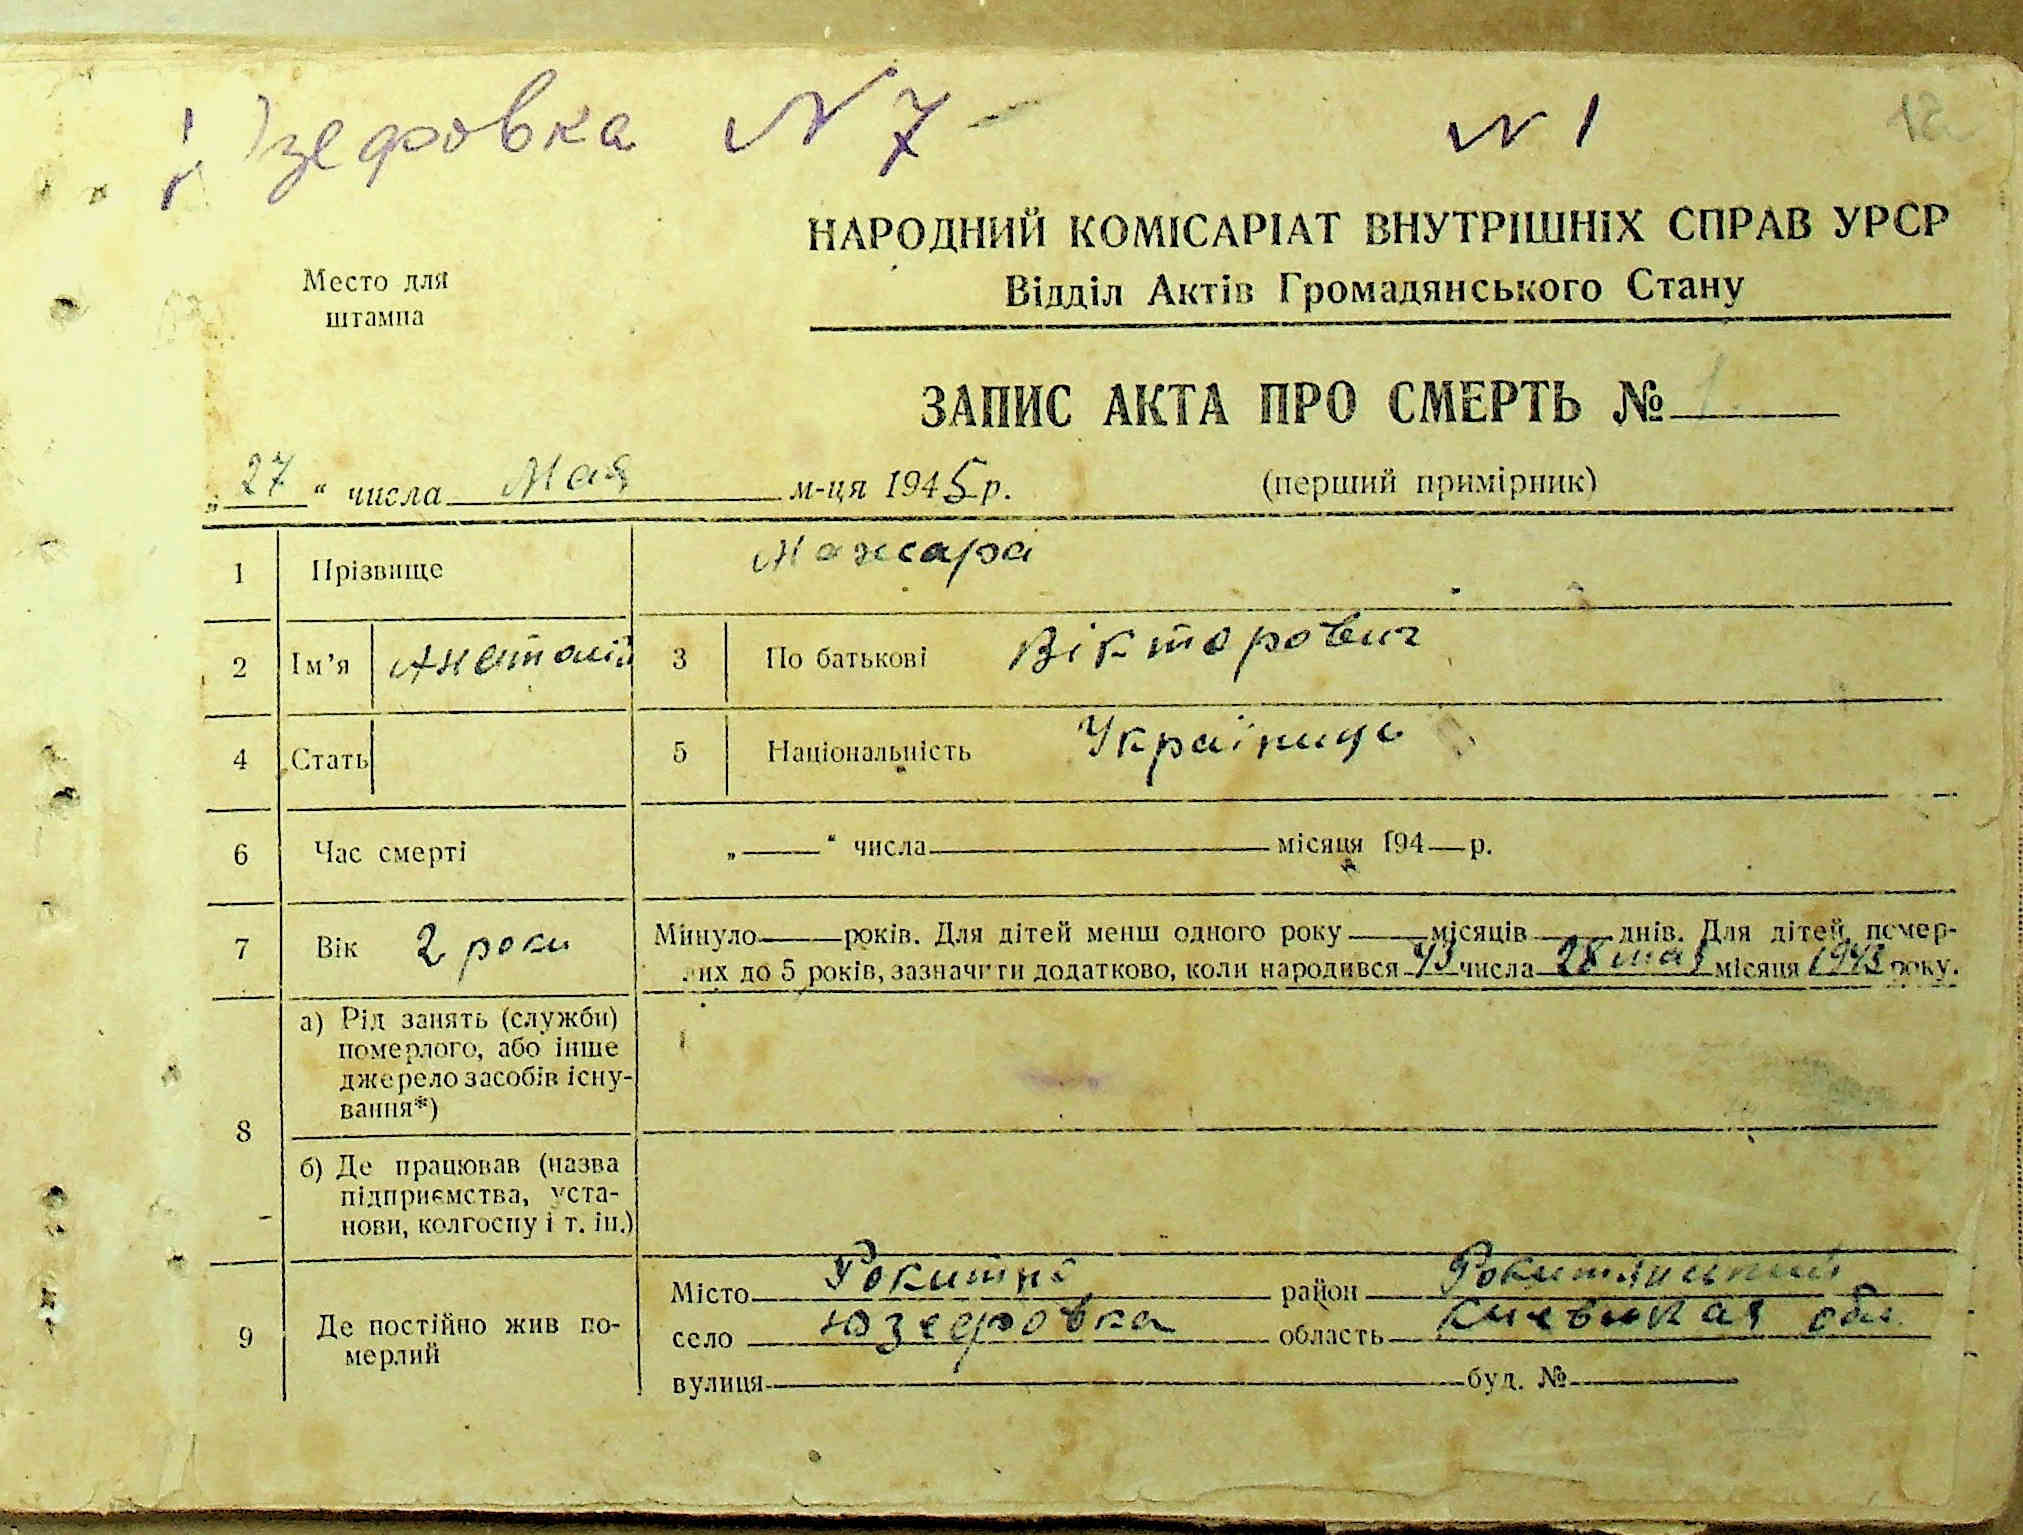 Юзефовка № 7
№ 1
12
НАРОДНИЙ КОМІСАРІАТ ВНУТРІШНІХ СПРАВ УРСР
Відділ Актів Громадянського Стану
Место для
штампа
ЗАПИС АКТА ПРО СМЕРТЬ № 1
„ 27 “ числа Мая м-ця 1945 р.
(перший примірник)
1 Прізвище Мажара
2 Ім’я Анатолій 3 По батькові Вікторович
4 Стать 5 Національність Українець
6 Час смерті „ “ числа місяця 194 р.
7 Вік 2 роки Минуло років. Для дітей менш одного року місяців днів. Для дітей, помер-
лих до 5 років, зазначити додатково, коли народився 43 числа 28 мая місяця 1943 року.
8 а) Рід занять (служби)
померлого, або інше
джерело засобів існу-
вання*)
б) Де працював (назва
підприємства, уста-
нови, колгоспу і т. ін.)
9 Де постійно жив по-
мерлий
Місто Рокитна район Рокитнянський
село Юзефовка область Киевская обл.
вулиця буд. №